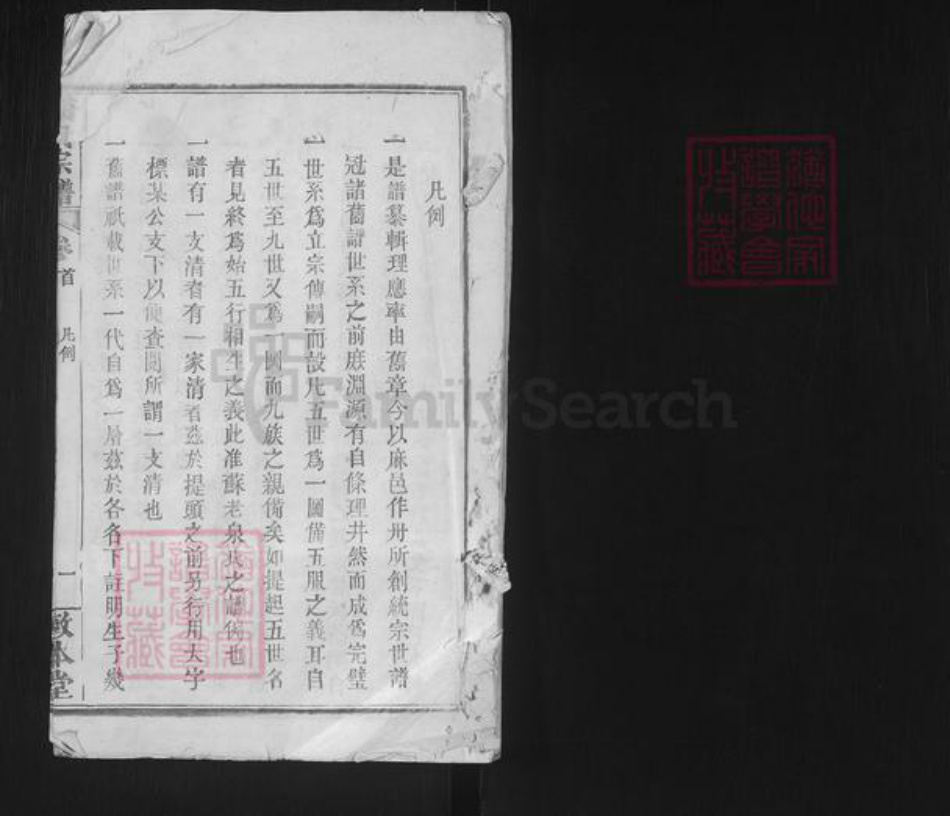 凡例
一是譜纂輯理應率由舊章今以麻邑作册所創統宗世譜
冠諸舊譜世系之前庶淵源有自條理井然而成爲完璧
一世系爲立宗傳嗣而設凡五世爲一圖備五服之義耳自
五世至九世又爲一圖而九族之親備矣如提起五世名
者見終爲始五行相生之義此准蘇老泉氏之譜例也
一譜有一支清者有一家清者茲於提頭之前另行用大字
標某公支下以便查閱所謂一支清也
一舊譜祇載世系一代自爲一層茲於各名下註明生子幾
宗譜
卷首
凡例
一
敬本堂
FamilySearch
收藏
譜學會